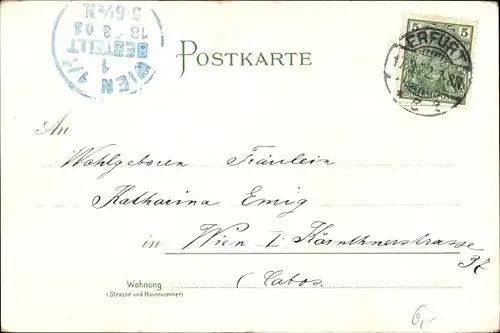 WIEN 1/1
1
BESTELLT
18 3 03
5-6½N
POSTKARTE
5 5
ERFURT
An
Wohlgeboren Fräulein
Katharina Emig
in Wien I. Kärnthnerstrasse
37
(Cabos.
Wohnung
(Strasse und Hausnummer)
6,-